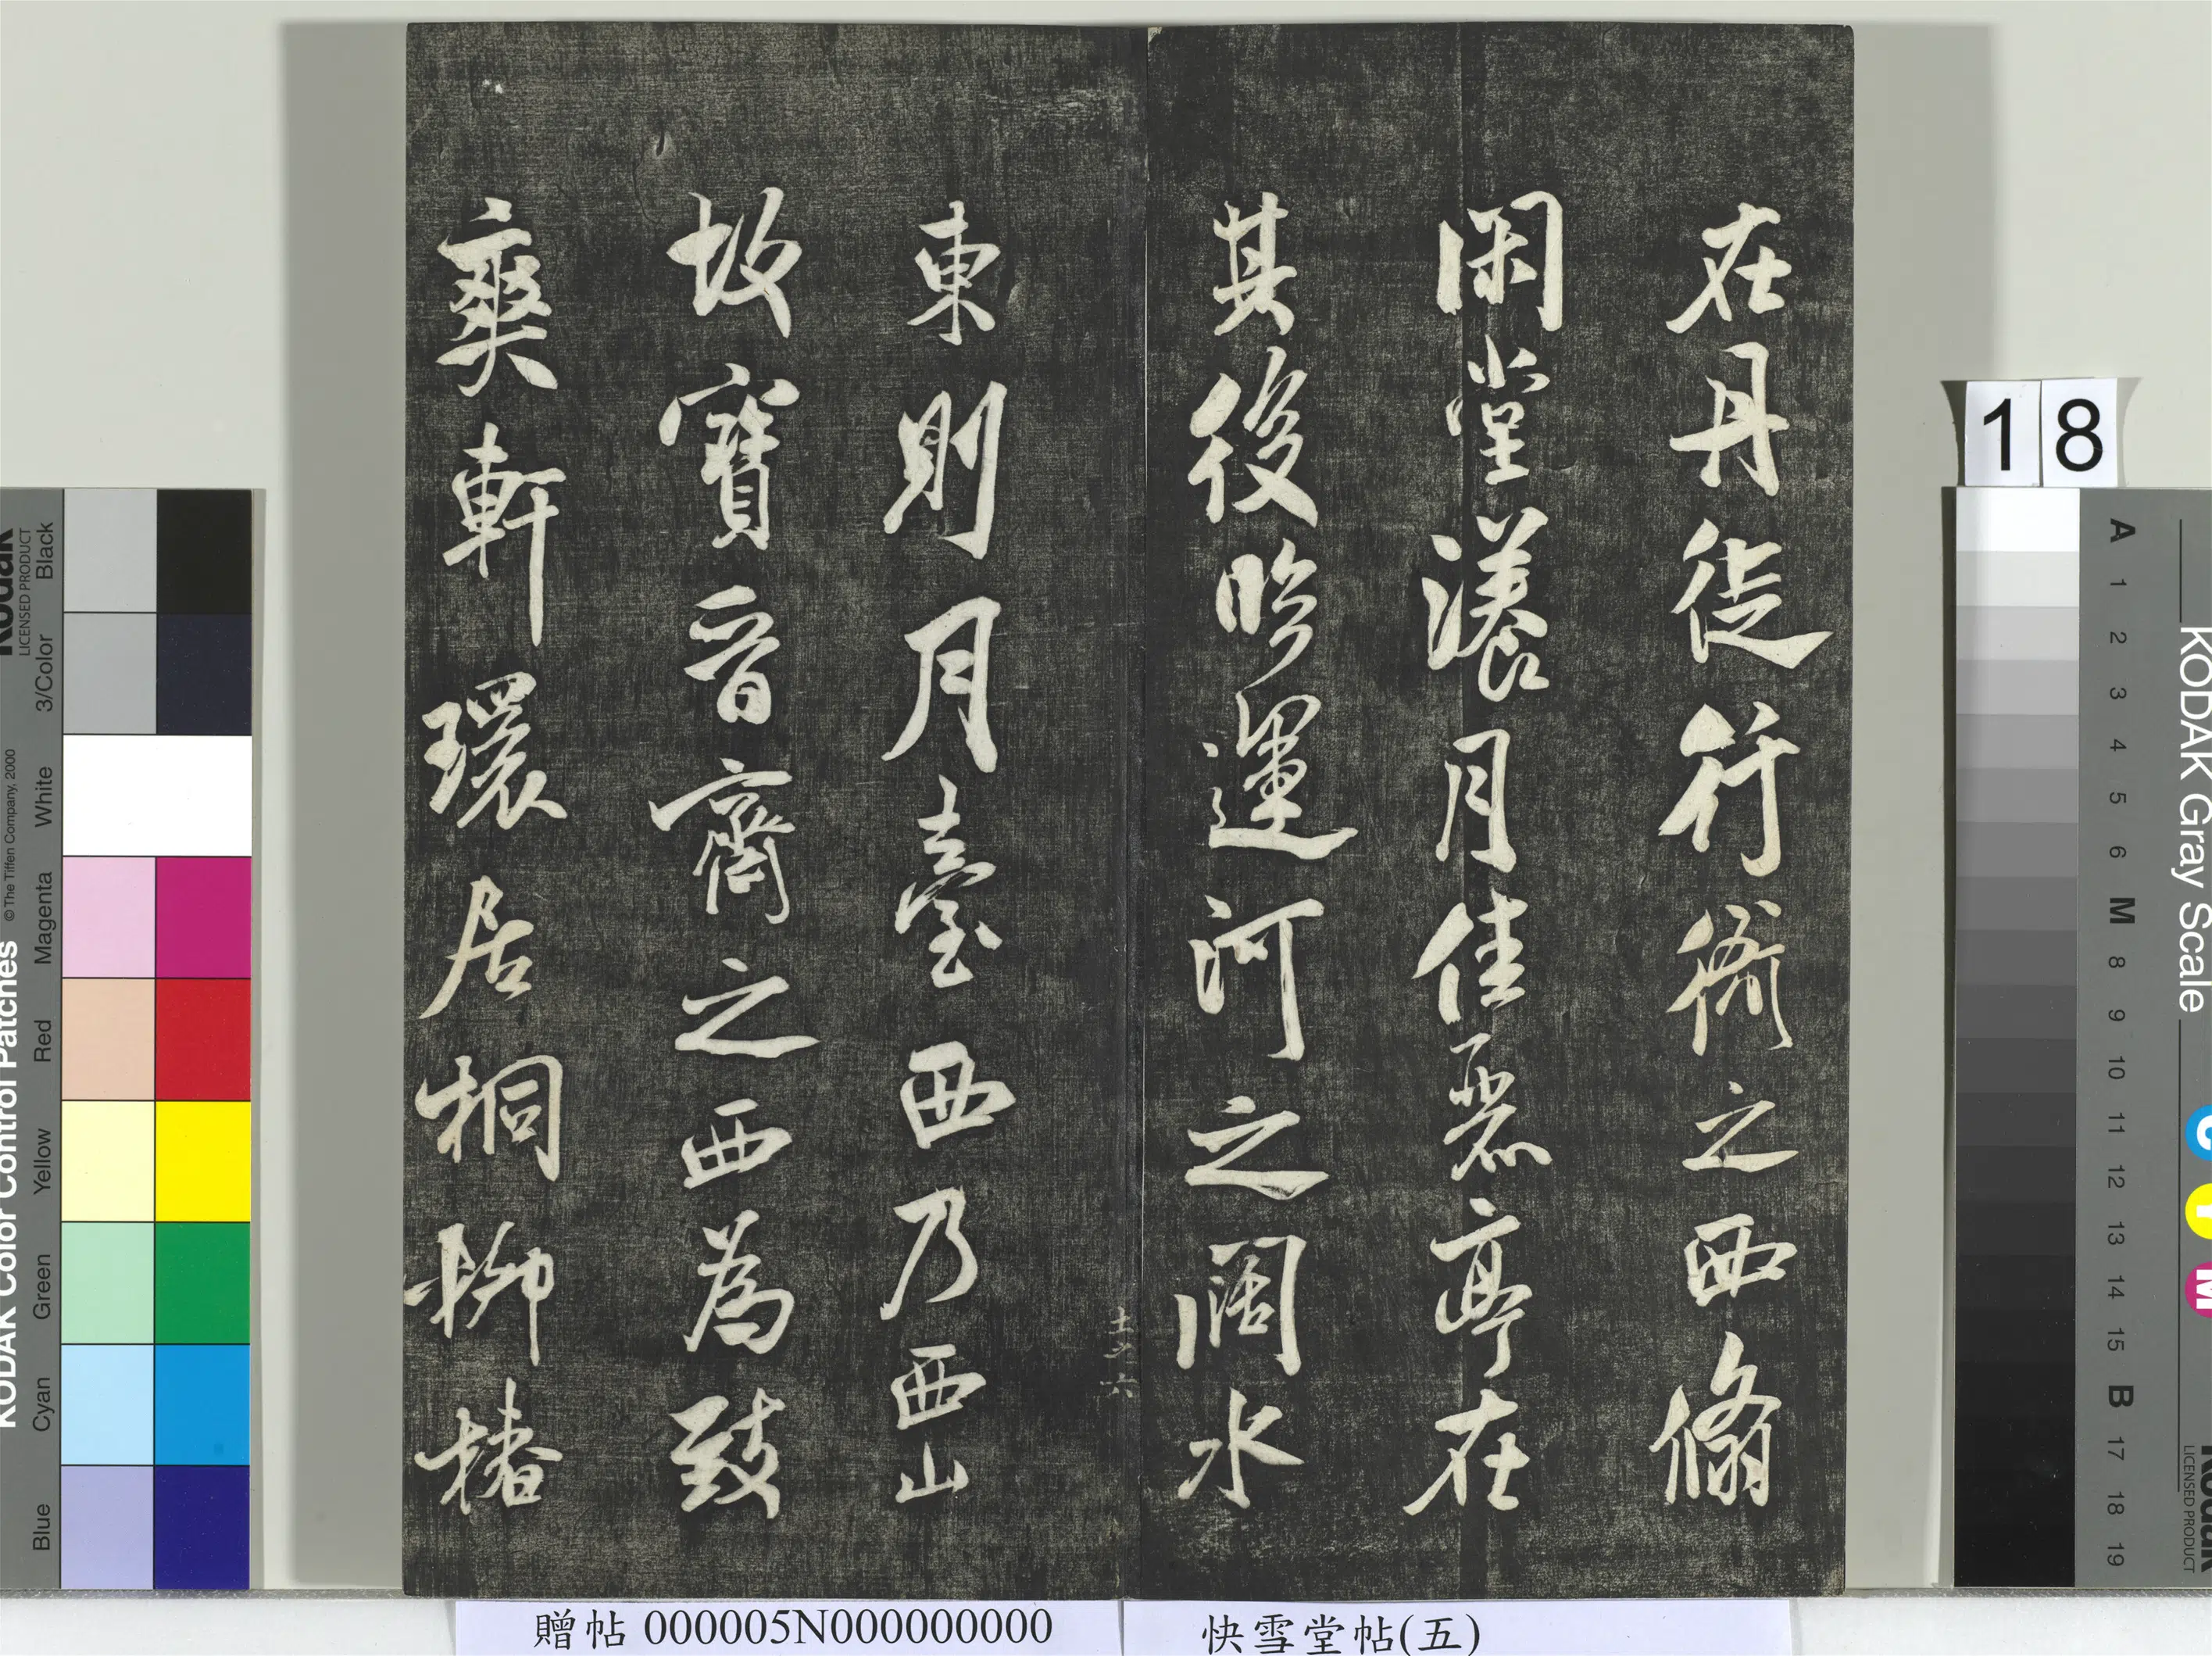 在丹徒行衙之西翛
閑堂漾月佳麗亭在
其後臨運河之闊水
東則月臺西乃西山
故寶晉齋之西為致
爽軒環居桐柳椿
贈帖 000005N000000000
快雪堂帖(五)
18
KODAK Color Control Patches
© The Tiffen Company, 2000
Kodak
LICENSED PRODUCT
Blue Cyan Green Yellow Red Magenta White 3/Color Black
KODAK Gray Scale
C Y M
Kodak
LICENSED PRODUCT
A 1 2 3 4 5 6 M 8 9 10 11 12 13 14 15 B 17 18 19